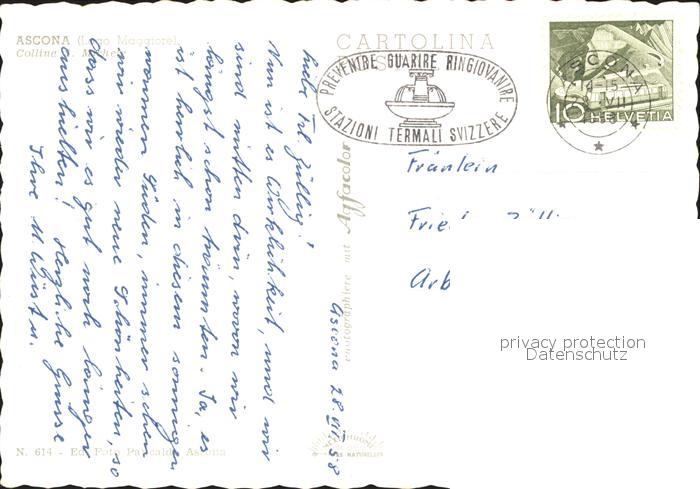 ASCONA (Lago Maggiore)
CARTOLINA
PREVENIRE GUARIRE RINGIOVANIRE
STAZIONI TERMALI SVIZZERE
ASCONA
10 HELVETIA
Ascona 28. VII. 58
Liebe Frl. Züllig!
Nun ist es Wirklichkeit, und wir
sind mitten drin, wovon wir
längst schon träumten. Ja, es
ist herrlich in diesem sonnigen
warmen Süden, immer sehen
wir wieder neue Schönheiten, so
dass wir es gut noch länger
aushielten! Herzliche Grüsse
Ihre M.
photographiere mit Agfacolor
Fräulein
Arb
privacy protection
Datenschutz
N. 614 - Ed. Foto Ascona